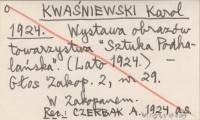 KWAŚNIEWSKI Karol
1924. - Wystawa obrazów
towarzystwa "Sztuka Podha-
lańska". (Lato 1924.) -
Głos Zakop. 2, nr. 29.
W Zakopanem.
Rec.: CZERBAK A. 1924 a.s.